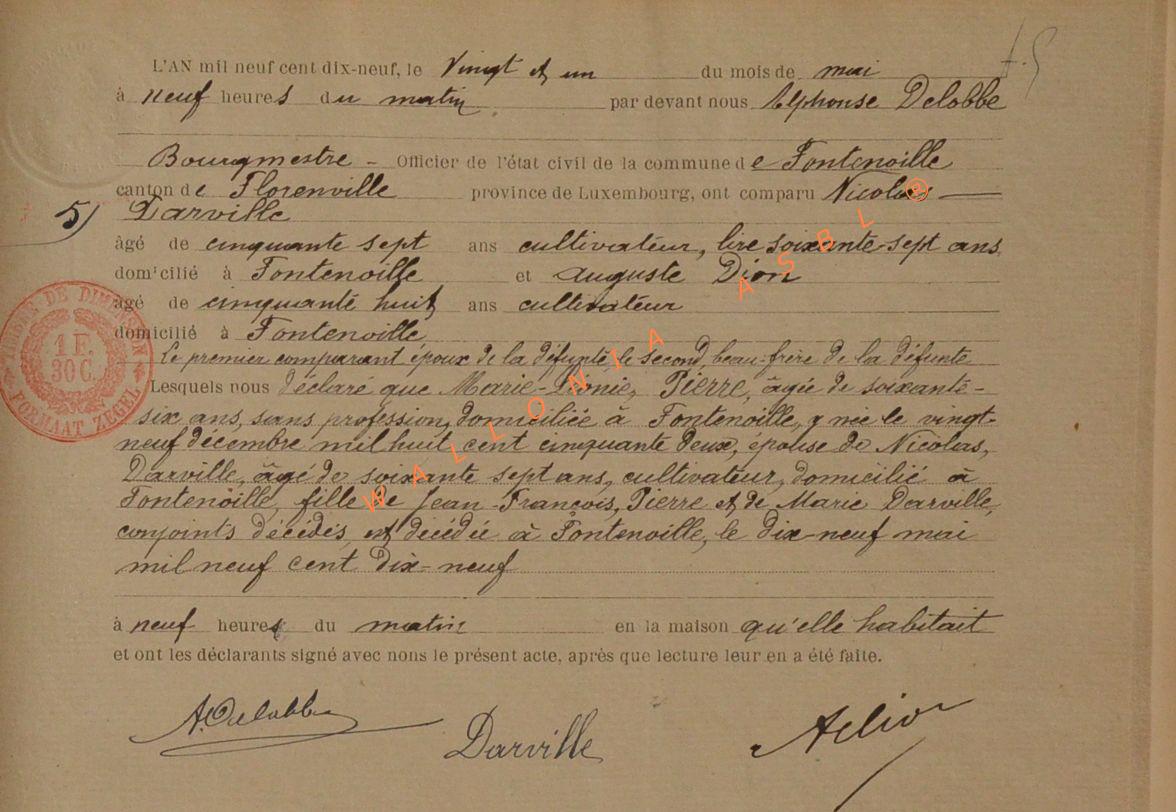 L'AN mil neuf cent dix-neuf, le vingt et un du mois de mai
à neuf heures du matin par devant nous Alphonse Delobbe
Bourgmestre - Officier de l'état civil de la commune de Fontenoille
canton de Florenville province de Luxembourg, ont comparu Nicolas
5) Darville
âgé de cinquante sept ans cultivateur, lire soixante-sept ans
domicilié à Fontenoille et Auguste Dion
âgé de cinquante huit ans cultivateur
domicilié à Fontenoille
Le premier comparant époux de la défunte le second, beau-frère de la défunte
Lesquels nous déclaré que Marie-Léonie, Pierre, âgée de soixante-
six ans, sans profession, domiciliée à Fontenoille, y née le vingt-
neuf décembre mil huit cent cinquante deux, épouse de Nicolas,
Darville, âgé de soixante sept ans, cultivateur, domicilié à
Fontenoille, fille de Jean-François, Pierre et de Marie Darville,
conjoints décédés, est décédée à Fontenoille, le dix-neuf mai
mil neuf cent dix-neuf
à neuf heures du matin en la maison qu'elle habitait
et ont les déclarants signé avec nous le présent acte, après que lecture leur en a été faite.
A. Delobbe
Darville
A Dion
TIMBRE DE DIMENSION
1 F.
30 C.
FORMAAT ZEGEL
WALLONIA ASBL @